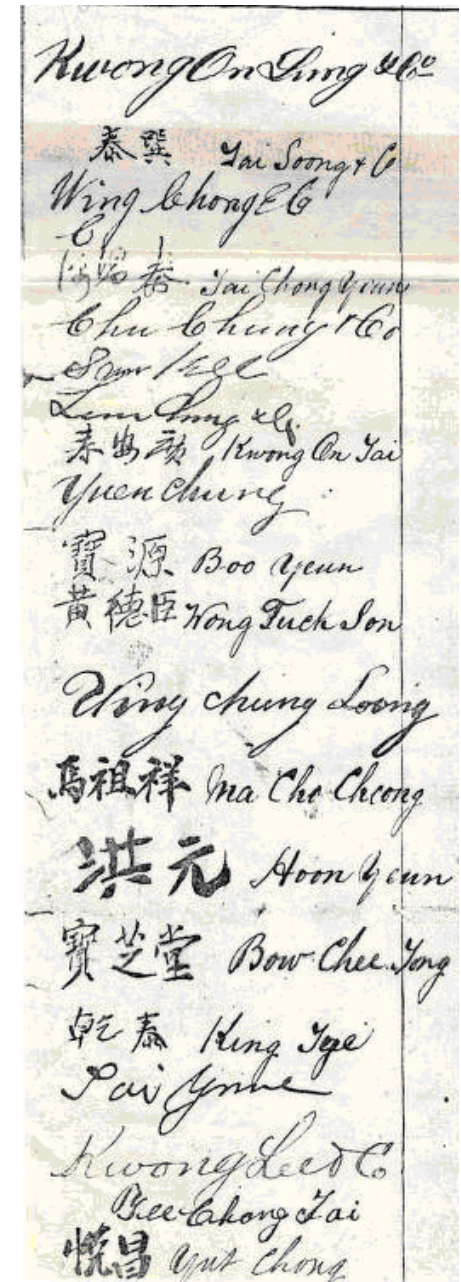 Kwong On Lung & Co
泰巽 Tai Soong & Co
Wing Chong & Co
泰 Tai Chong Yuun
Chu Chung & Co
Sun Kee
Lun Chung & Co
Kwong On Tai
Yuen Chung
寶源 Boo Yeun
黃德臣 Wong Tuck Son
Wing Chung Loong
馬祖祥 Ma Cho Cheong
洪元 Hoon Yeun
寶芝堂 Bow Chee Tong
乾泰 King Tye
Tai Yune
Kwong Lee & Co
Bee Chong Tai
昌 Yut Chong